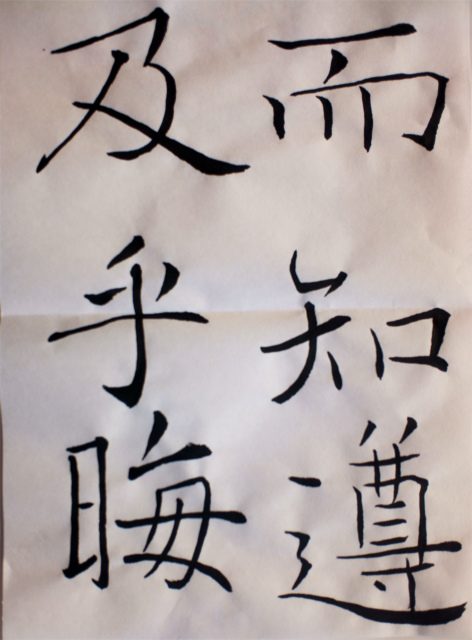 而知遵
及乎晦